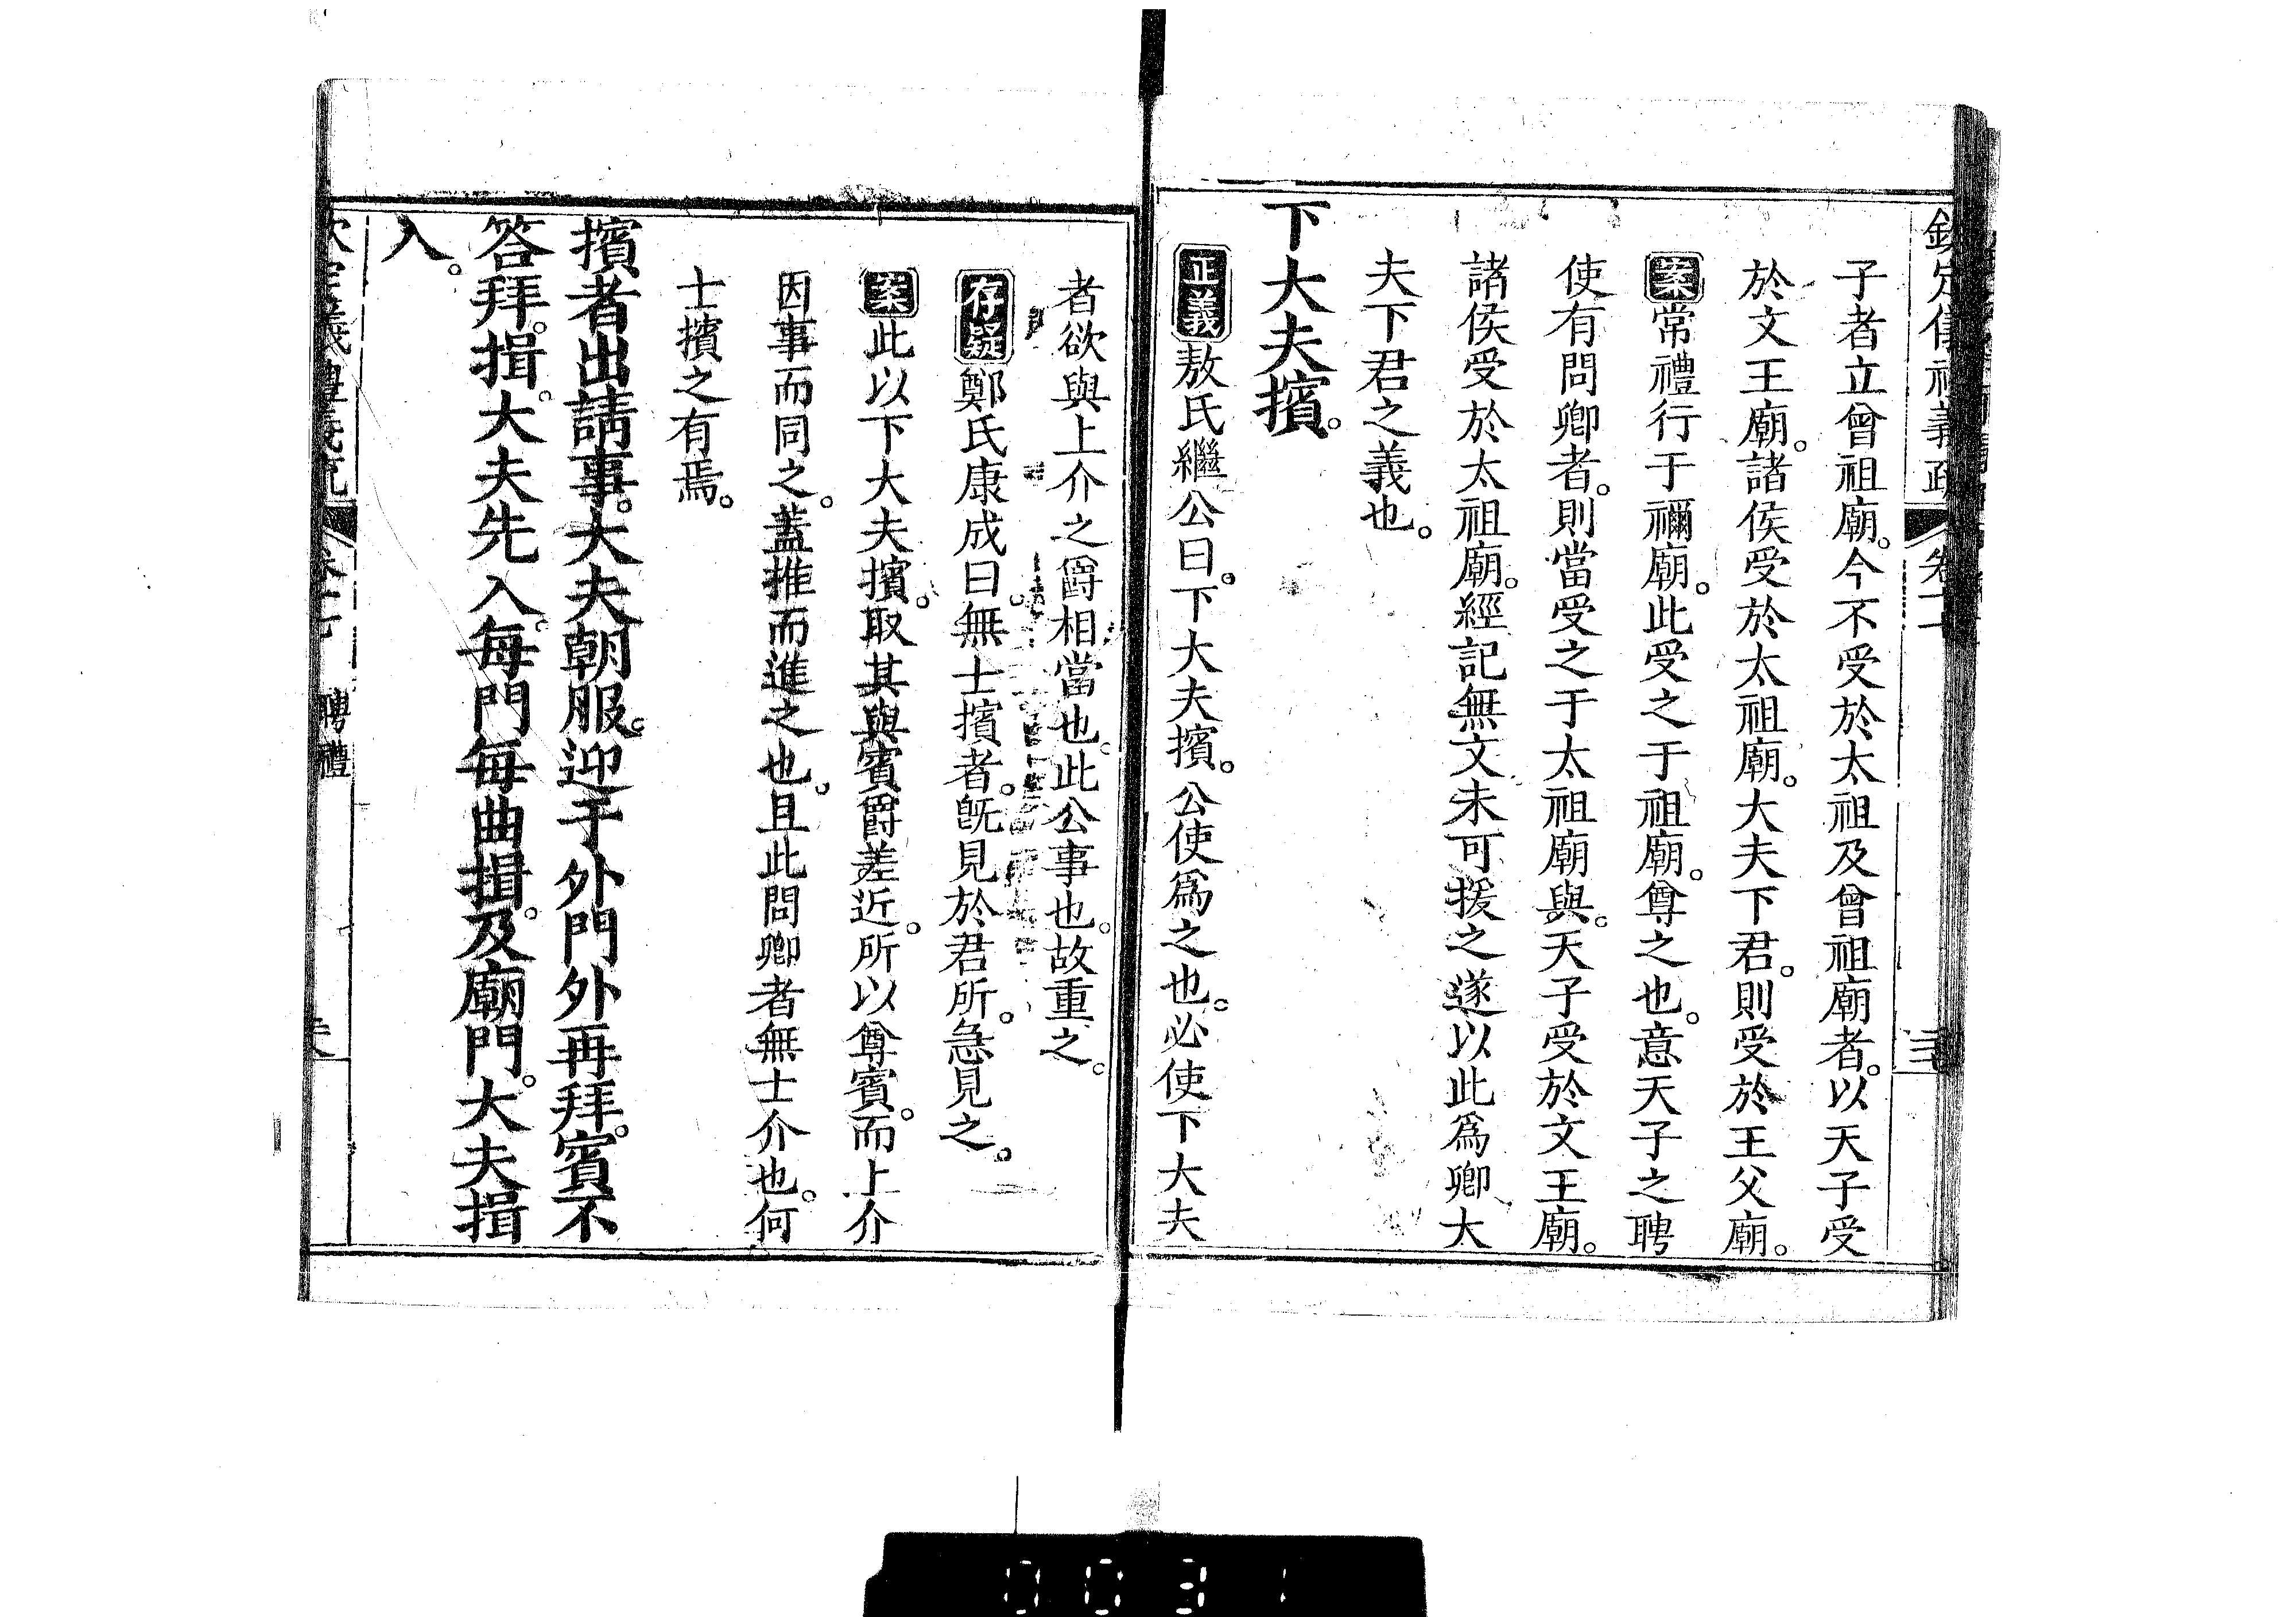 子者立曾祖廟。今不受於太祖及曾祖廟者。以天子受
於文王廟。諸侯受於太祖廟。大夫下君。則受於王父廟。
案常禮行于禰廟。此受之于祖廟。尊之也。意天子之聘
使有問卿者。則當受之于太祖廟與。天子受於文王廟。
諸侯受於太祖廟。經記無文未可援之遂以此爲卿大
夫下君之義也。
下大夫擯。
正義敖氏繼公曰。下大夫擯。公使爲之也。必使下大夫
者欲與上介之爵相當也。此公事也。故重之。
存疑鄭氏康成曰。無士擯者。旣見於君所。急見之。
案此以下大夫擯。取其與賓爵差近。所以尊賓。而上介
因事而同之。蓋推而進之也。且此問卿者無士介也。何
士擯之有焉。
擯者出請事。大夫朝服。迎于外門外再拜。賓不
答拜。揖。大夫先入。每門每曲揖。及廟門。大夫揖
入。
聘禮
0031